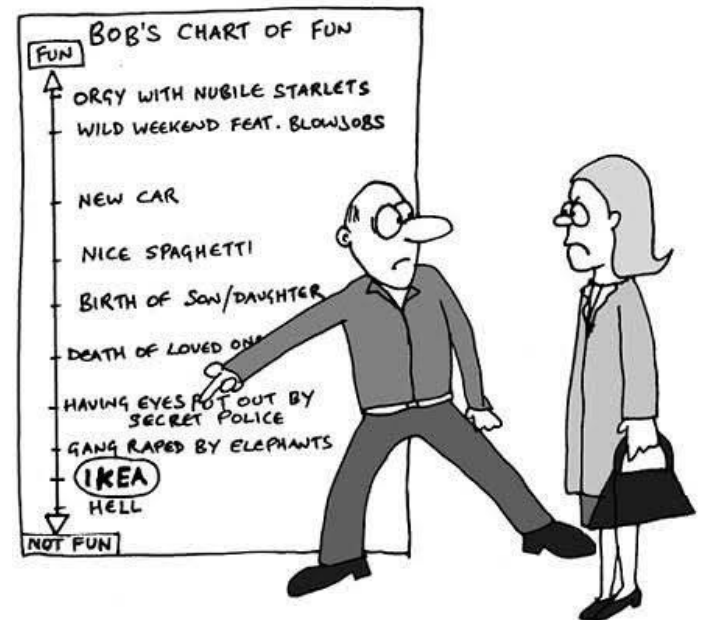 BOB'S CHART OF FUN
FUN
ORGY WITH NUBILE STARLETS
WILD WEEKEND FEAT. BLOWJOBS
NEW CAR
NICE SPAGHETTI
BIRTH OF SON/DAUGHTER
DEATH OF LOVED ONE
HAVING EYES PUT OUT BY
SECRET POLICE
GANG RAPED BY ELEPHANTS
IKEA
HELL
NOT FUN